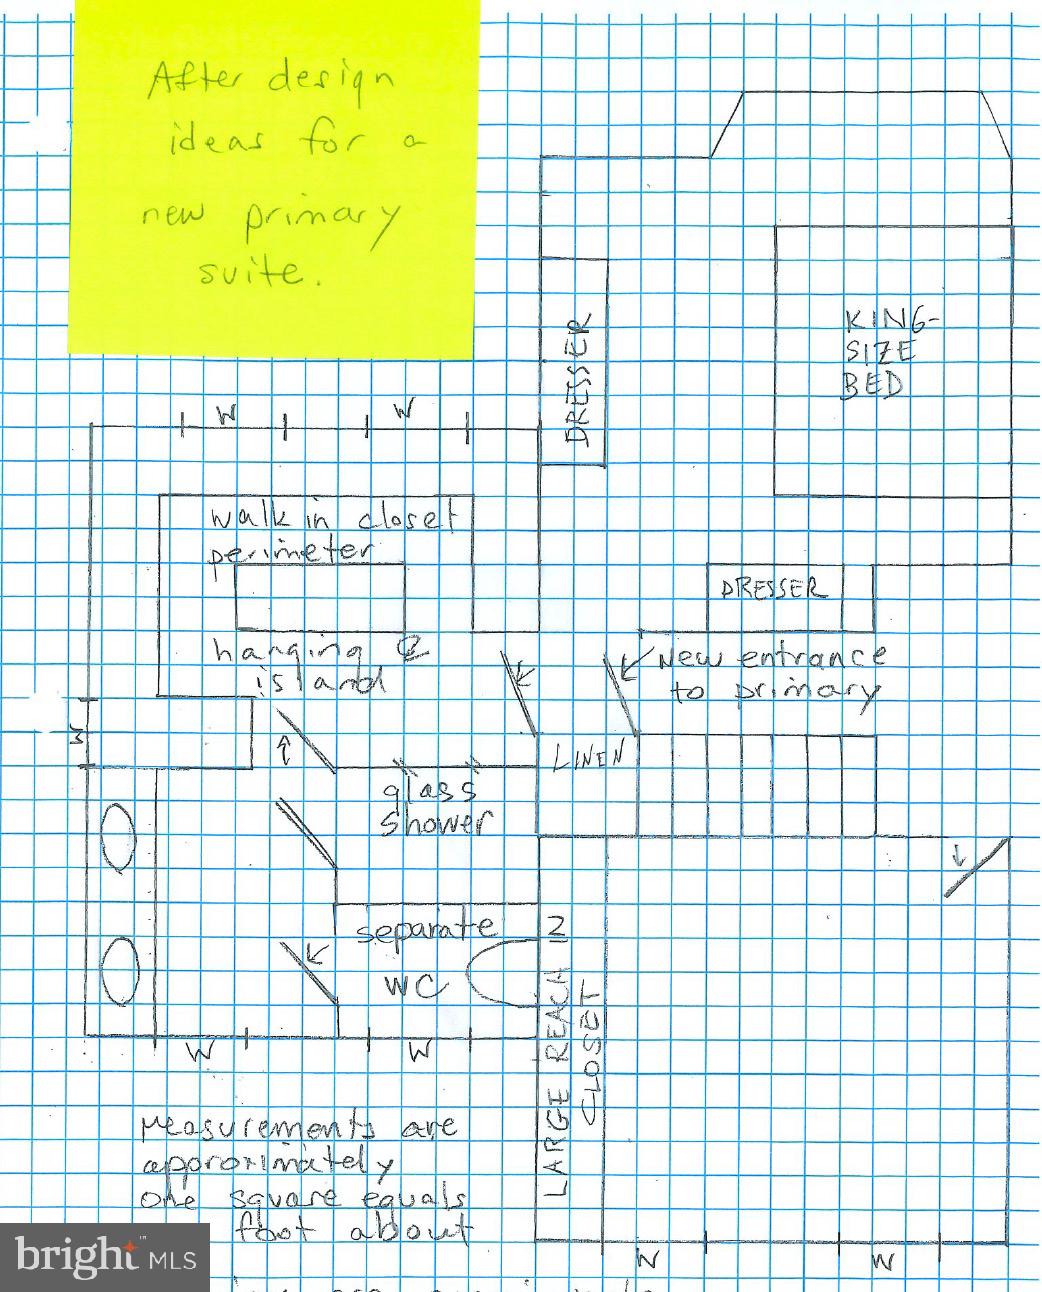 After design
ideas for a
new primary
suite.
KING-
SIZE
BED
DRESSER
W
W
walk in closet
perimeter
hanging &
island
DRESSER
New entrance
to primary
W
LINEN
glass
shower
separate
WC
LARGE REACH IN
CLOSET
W
W
Measurements are
approximately
one square equals
foot about
W
W
bright MLS